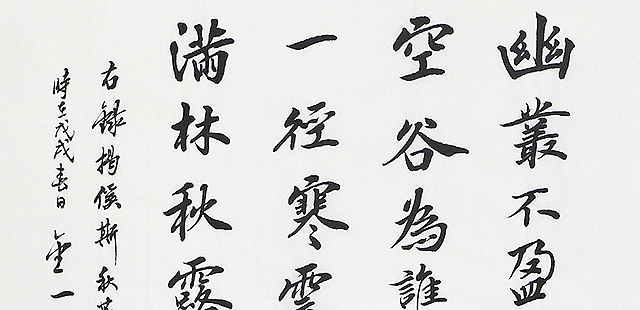 幽叢不盈
空谷為誰
一徑寒雲
滿林秋露
右錄揭傒斯秋蕙
時在戊戌春日金一